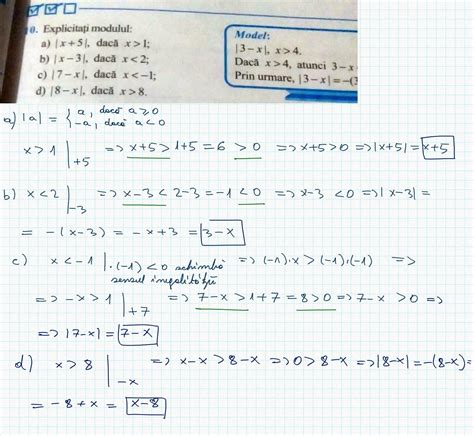 0. Explicitați modulul:
a) |x+5|, dacă x>1;
b) |x−3|, dacă x<2;
c) |7−x|, dacă x<−1;
d) |8−x|, dacă x>8.
Model:
|3−x|, x>4.
Dacă x>4, atunci 3−x
Prin urmare, |3−x|=−(3
a) |a| = { a, dacă a≥0
−a, dacă a<0
x>1 | +5 => x+5>1+5=6>0 => x+5>0 => |x+5|= x+5
b) x<2 | −3 => x−3<2−3=−1<0 => x−3<0 => |x−3|=
= −(x−3) = −x+3 = 3−x
c) x<−1 | ·(−1)<0 schimbă sensul inegalității => (−1)·x>(−1)·(−1) =>
=> −x>1 | +7 => 7−x>1+7=8>0 => 7−x>0 =>
=> |7−x|= 7−x
d) x>8 | −x => x−x>8−x => 0>8−x => |8−x|=−(8−x)=
= −8+x = x−8